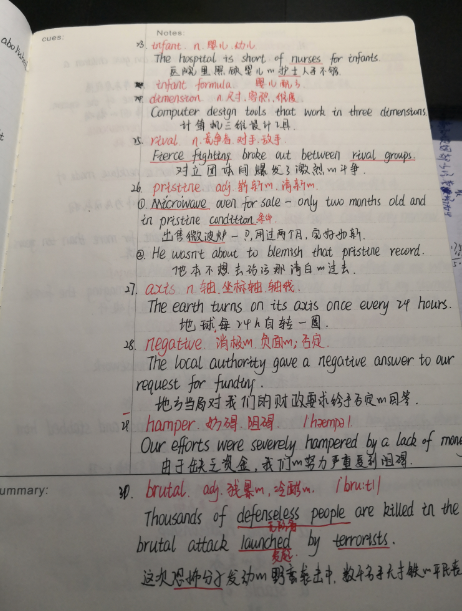 abo
cues:
Notes:
23. infant n. 婴儿.幼儿
The hospital is short of nurses for infants.
医院里照顾婴儿m护士人手不够
infant formula 婴儿配方
24. dimension n.尺寸.容积.维度
Computer design tools that work in three dimensions
计算机三维设计工具.
25. rival n.竞争者.对手.敌手
Fierce fighting broke out between rival groups.
对立团体间爆发了激烈m斗争.
26. pristine adj.崭新m.清新m.
① Microwave oven for sale – only two months old and
in pristine condition
出售微波炉-只用过两个月,
② He wasn't about to blemish that pristine record.
他本不想去玷污那清白m过去.
27. axis n.轴.坐标轴.轴线
The earth turns on its axis once every 24 hours.
地球每24h自转一圈.
28. negative. 消极m.负面m;否定
The local authority gave a negative answer to our
request for funding.
地方当局对我们的财政要求给予否定m回答.
29 hamper. 妨碍.阻碍. /hæmpə/
Our efforts were severely hampered by a lack of mon
由于缺乏资金,我们m努力严重受到阻碍.
ummary:
30. brutal. adj.残暴m,冷酷m. /bru:tl/
Thousands of defenseless people are killed in the
brutal attack launched by terrorists.
发起
这次恐怖分子发动m